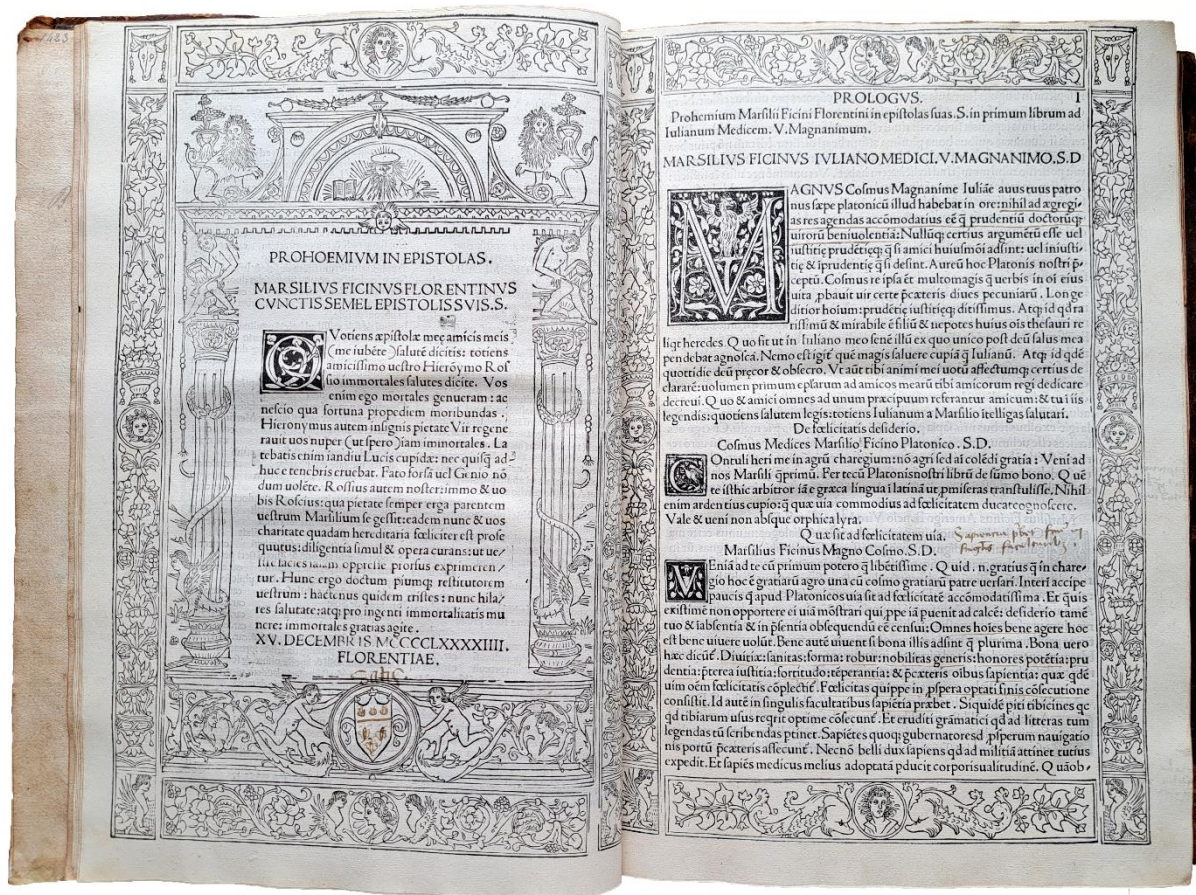 1483
PROHOEMIVM IN EPISTOLAS.
MARSILIVS FICINVS FLORENTINVS
CVNCTIS SEMEL EPISTOLIS SVIS.S.
QVotiens æpistolæ meę amicis meis
(me iubēte) salutē dicitis: totiens
amicissimo uestro Hierōymo Ros
sio immortales salutes dicite. Vos
enim ego mortales genueram: ac
nescio qua fortuna propediem moribundas.
Hieronymus autem insignis pietate Vir regene
rauit uos nuper (ut spero) iam immortales. La
tebatis enim iandiu Lucis cupidæ: nec quisq̄ ad
huc e tenebris eruebat. Fato forsā uel Genio nō
dum uolēte. Rossius autem noster: immo & uo
bis Roscius: qua pietate semper erga parentem
uestrum Marsilium se gessit: eadem nunc & uos
charitate quadam hereditaria fœliciter est prose
quutus: diligentia simul & opera curans: ut ue-
stræ facies iaiam oppresse prorsus exprimeren/
tur. Hunc ergo doctum piumq; restitutorem
uestrum: hactenus quidem tristes: nunc hila/
res salutate: atq; pro ingenti immortalitatis mu
nere: immortales gratias agite.
XV. DECEMBRIS. MCCCCLXXXXIIII.
FLORENTIAE.
PROLOGVS. I
Prohemium Marsilii Ficini Florentini in epistolas suas. S. in primum librum ad
Iulianum Medicem. V. Magnanimum.
MARSILIVS FICINVS IVLIANO MEDICI. V. MAGNANIMO. S.D
MAGNVS Cosmus Magnanime Iuliāe auus tuus patro
nus sæpe platonicū illud habebat in ore: nihil ad ægregi-
as res agendas accōmodatius eē q̄ prudentiū doctorūq;
uirorū beniuolentia: Nullūq; certius argumētū esse uel
iustitię prudētięq; q̄ si amici huiusmōi adsint: uel iniusti-
tię & īprudentię q̄ si desint. Aureū hoc Platonis nostri p̄-
ceptū. Cosmus re ipsa ēt multomagis q̄ uerbis in oī eius
uita ,pbauit uir certe p̄cæteris diues pecuniarū. Longe
ditior hoium: prudētię iustitięq; ditissimus. Atq; id qd ra-
rissimū & mirabile ē filiū & nepotes huius oīs thesauri re
liqt heredes. Quo fit ut in Iuliano meo senē illū ex quo unico post deū salus mea
pendebat agnoscā. Nemo est igit́ quē magis saluere cupiā q̄ Iulianū. Atq; id qdē
quottidie deū pręcor & obsecro. Vt aūt tibi animi mei uotū affectumq; certius de
clararē: uolumen primum epsarum ad amicos mearū tibi amicorum regi dedicare
decreui. Quo & amici omnes ad unum præcipuum referantur amicum: & tu ī iis
legendis: quotiens salutem legis: totiens Iulianum a Marsilio ītelligas salutari.
De fœlicitatis desiderio.
Cosmus Medices Marsilio Ficino Platonico. S.D.
COntuli heri me in agrū charegium: nō agri sed aī colēdi gratia: Veni ad
nos Marsili q̄primū. Fer tecū Platonis nostri librū de sūmo bono. Quē
te isthic arbitror iā e græca lingua ī latinā ut ,pmiseras transtulisse. Nihil
enim ardentius cupio: q̄ quæ uia commodius ad fœlicitatem ducat cognoscere.
Vale & ueni non absque orphica lyra.
Quæ sit ad fœlicitatem uia.
Marsilius Ficinus Magno Cosmo. S.D.
VEniā ad te cū primum potero q̄ libētissime. Quid .n. gratius q̄ in chare-
gio hoc ē gratiarū agro una cū cosmo gratiarū patre uersari. Interī accipe
paucis q̄ apud Platonicos uia sit ad fœlicitatē accōmodatissima. Et quis
existimē non opportere ei uiā mōstrari qui ,ppe iā puenit ad calcē: desiderio tamē
tuo & iabsentia & in p̄sentia obsequendū eē censui; Omnes hoīes bene agere hoc
est bene uiuere uolūt. Bene autē uiuent si bona illis adsint q̄ plurima. Bona uero
hæc dicūt́. Diuitiæ: sanitas: forma: robur: nobilitas generis: honores potētia: pru
dentia: p̄terea iustitia: fortitudo: tēperantia: & p̄cæteris oībus sapientia: quæ qdē
uim oēm fœlicitatis cōplectit́. Fœlicitas quippe in ,pspera optati finis cōsecutione
consistit. Id autē in singulis facultatibus sapiētia præbet. Siquidē piti tibicines qc
qd tibiarum usus reqrit optime cōsecunt́. Et eruditi grāmatici qd ad litteras tum
legendas tū scribendas ptinet. Sapiētes quoq; gubernatores ad ,psperum nauigatio
nis portū p̄cæteris assecunt́. Necnō belli dux sapiens qd ad militiā attinet tutius
expedit. Et sapiēs medicus melius adoptatā pducit corporis ualitudinē. Quāob-